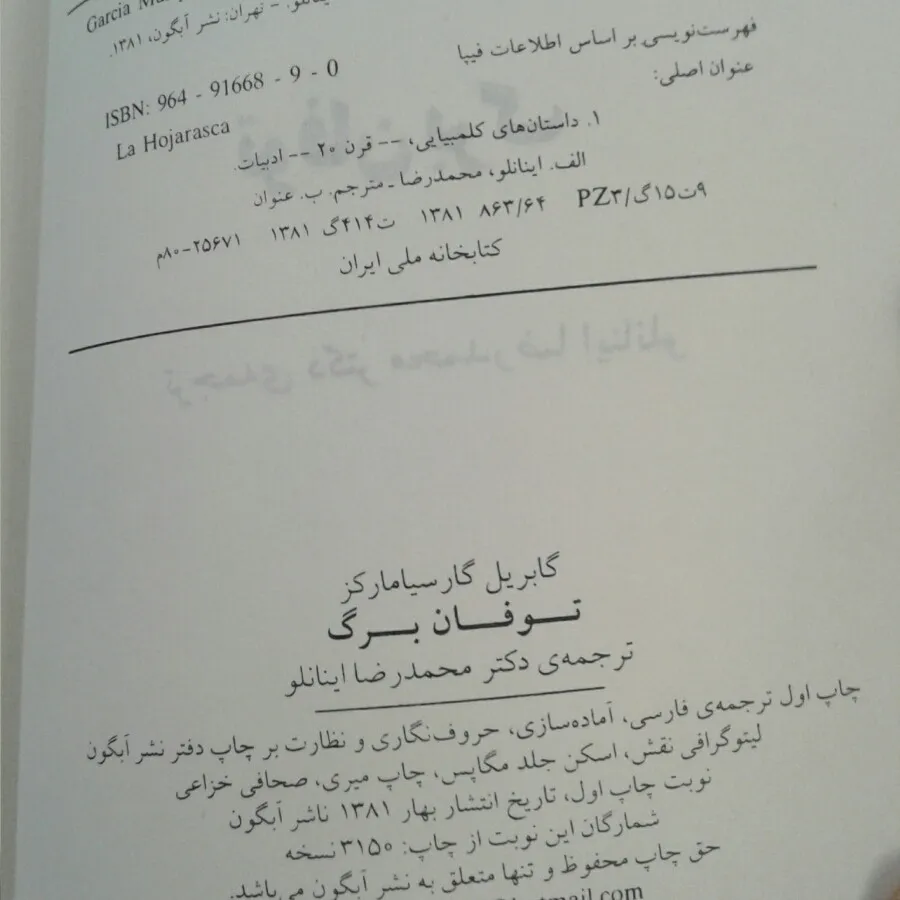 Garcia
تهران: نشر آبگون، ۱۳۸۱.
ISBN: 964 - 91668 - 9 - 0
فهرست‌نویسی بر اساس اطلاعات فیپا
La Hojarasca
عنوان اصلی:
۱. داستان‌های کلمبیایی، -- قرن ۲۰ -- ادبیات.
الف. اینانلو، محمدرضا ـ مترجم. ب. عنوان
۹ت۱۵گ/PZ۳ ۸۶۳/۶۴ ۱۳۸۱ ت۴۱۴گ ۱۳۸۱ ۲۵۶۷۱-۸۰م
کتابخانه ملی ایران
گابریل گارسیامارکز
تـوفـان بـرگ
ترجمه‌ی دکتر محمدرضا اینانلو
چاپ اول ترجمه‌ی فارسی، آماده‌سازی، حروف‌نگاری و نظارت بر چاپ دفتر نشر آبگون
لیتوگرافی نقش، اسکن جلد مگاپس، چاپ میری، صحافی خزاعی
نوبت چاپ اول، تاریخ انتشار بهار ۱۳۸۱ ناشر آبگون
شمارگان این نوبت از چاپ: ۳۱۵۰ نسخه
حق چاپ محفوظ و تنها متعلق به نشر آبگون می‌باشد.